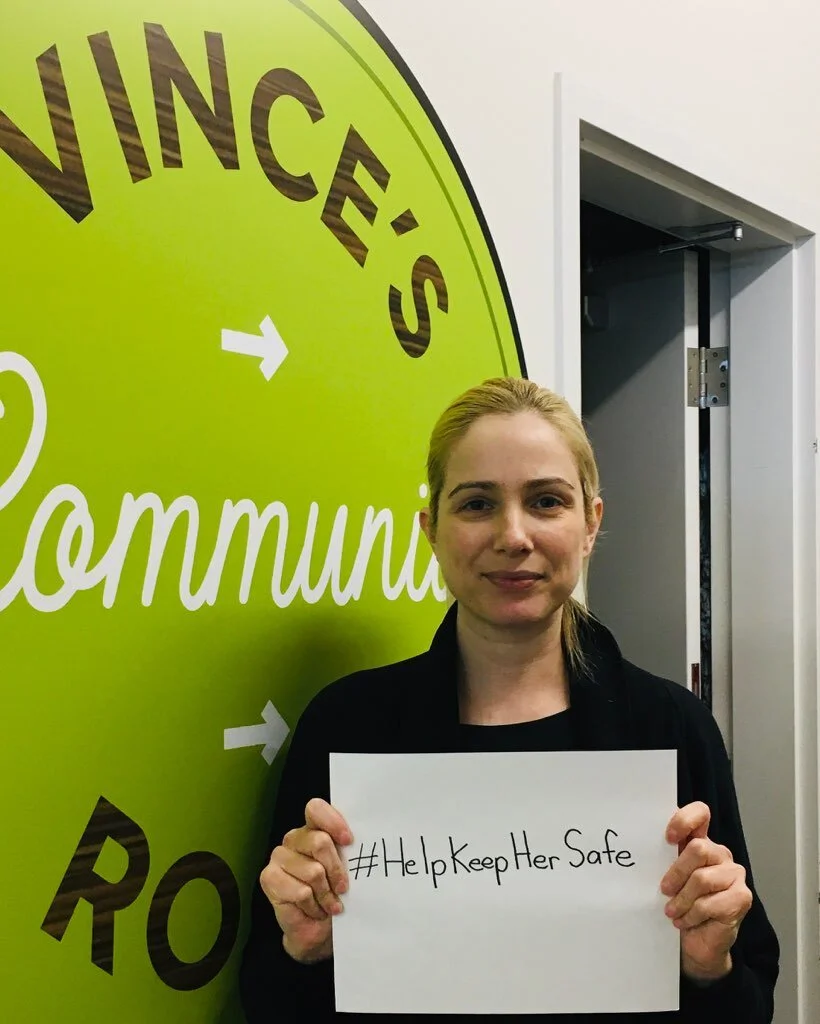 VINCE'S
Communi
RO
#HelpKeepHerSafe